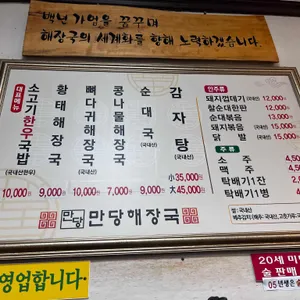 백년 가업을 꿈꾸며
해장국의 세계화를 향해 노력하겠습니다.
대표메뉴
소고기한우국밥 (국내산한우) 10,000원
황태해장국 9,000원
뼈다귀해장국 (국내산) 10,000원
콩나물해장국 7,000원
순대국 (국내산) 9,000원
감자탕 (국내산) 소35,000원 대45,000원
안주류
돼지껍데기 (국내산) 12,000원
찰순대한판 12,000원
순대볶음 13,000원
돼지볶음 15,000원
닭발 15,000원
주류
소주 4,50
맥주 4,50
탁배기1잔
탁배기1병
쌀 : 국내산
만당 만당해장국
영업합니다.
20세 미
술 판매